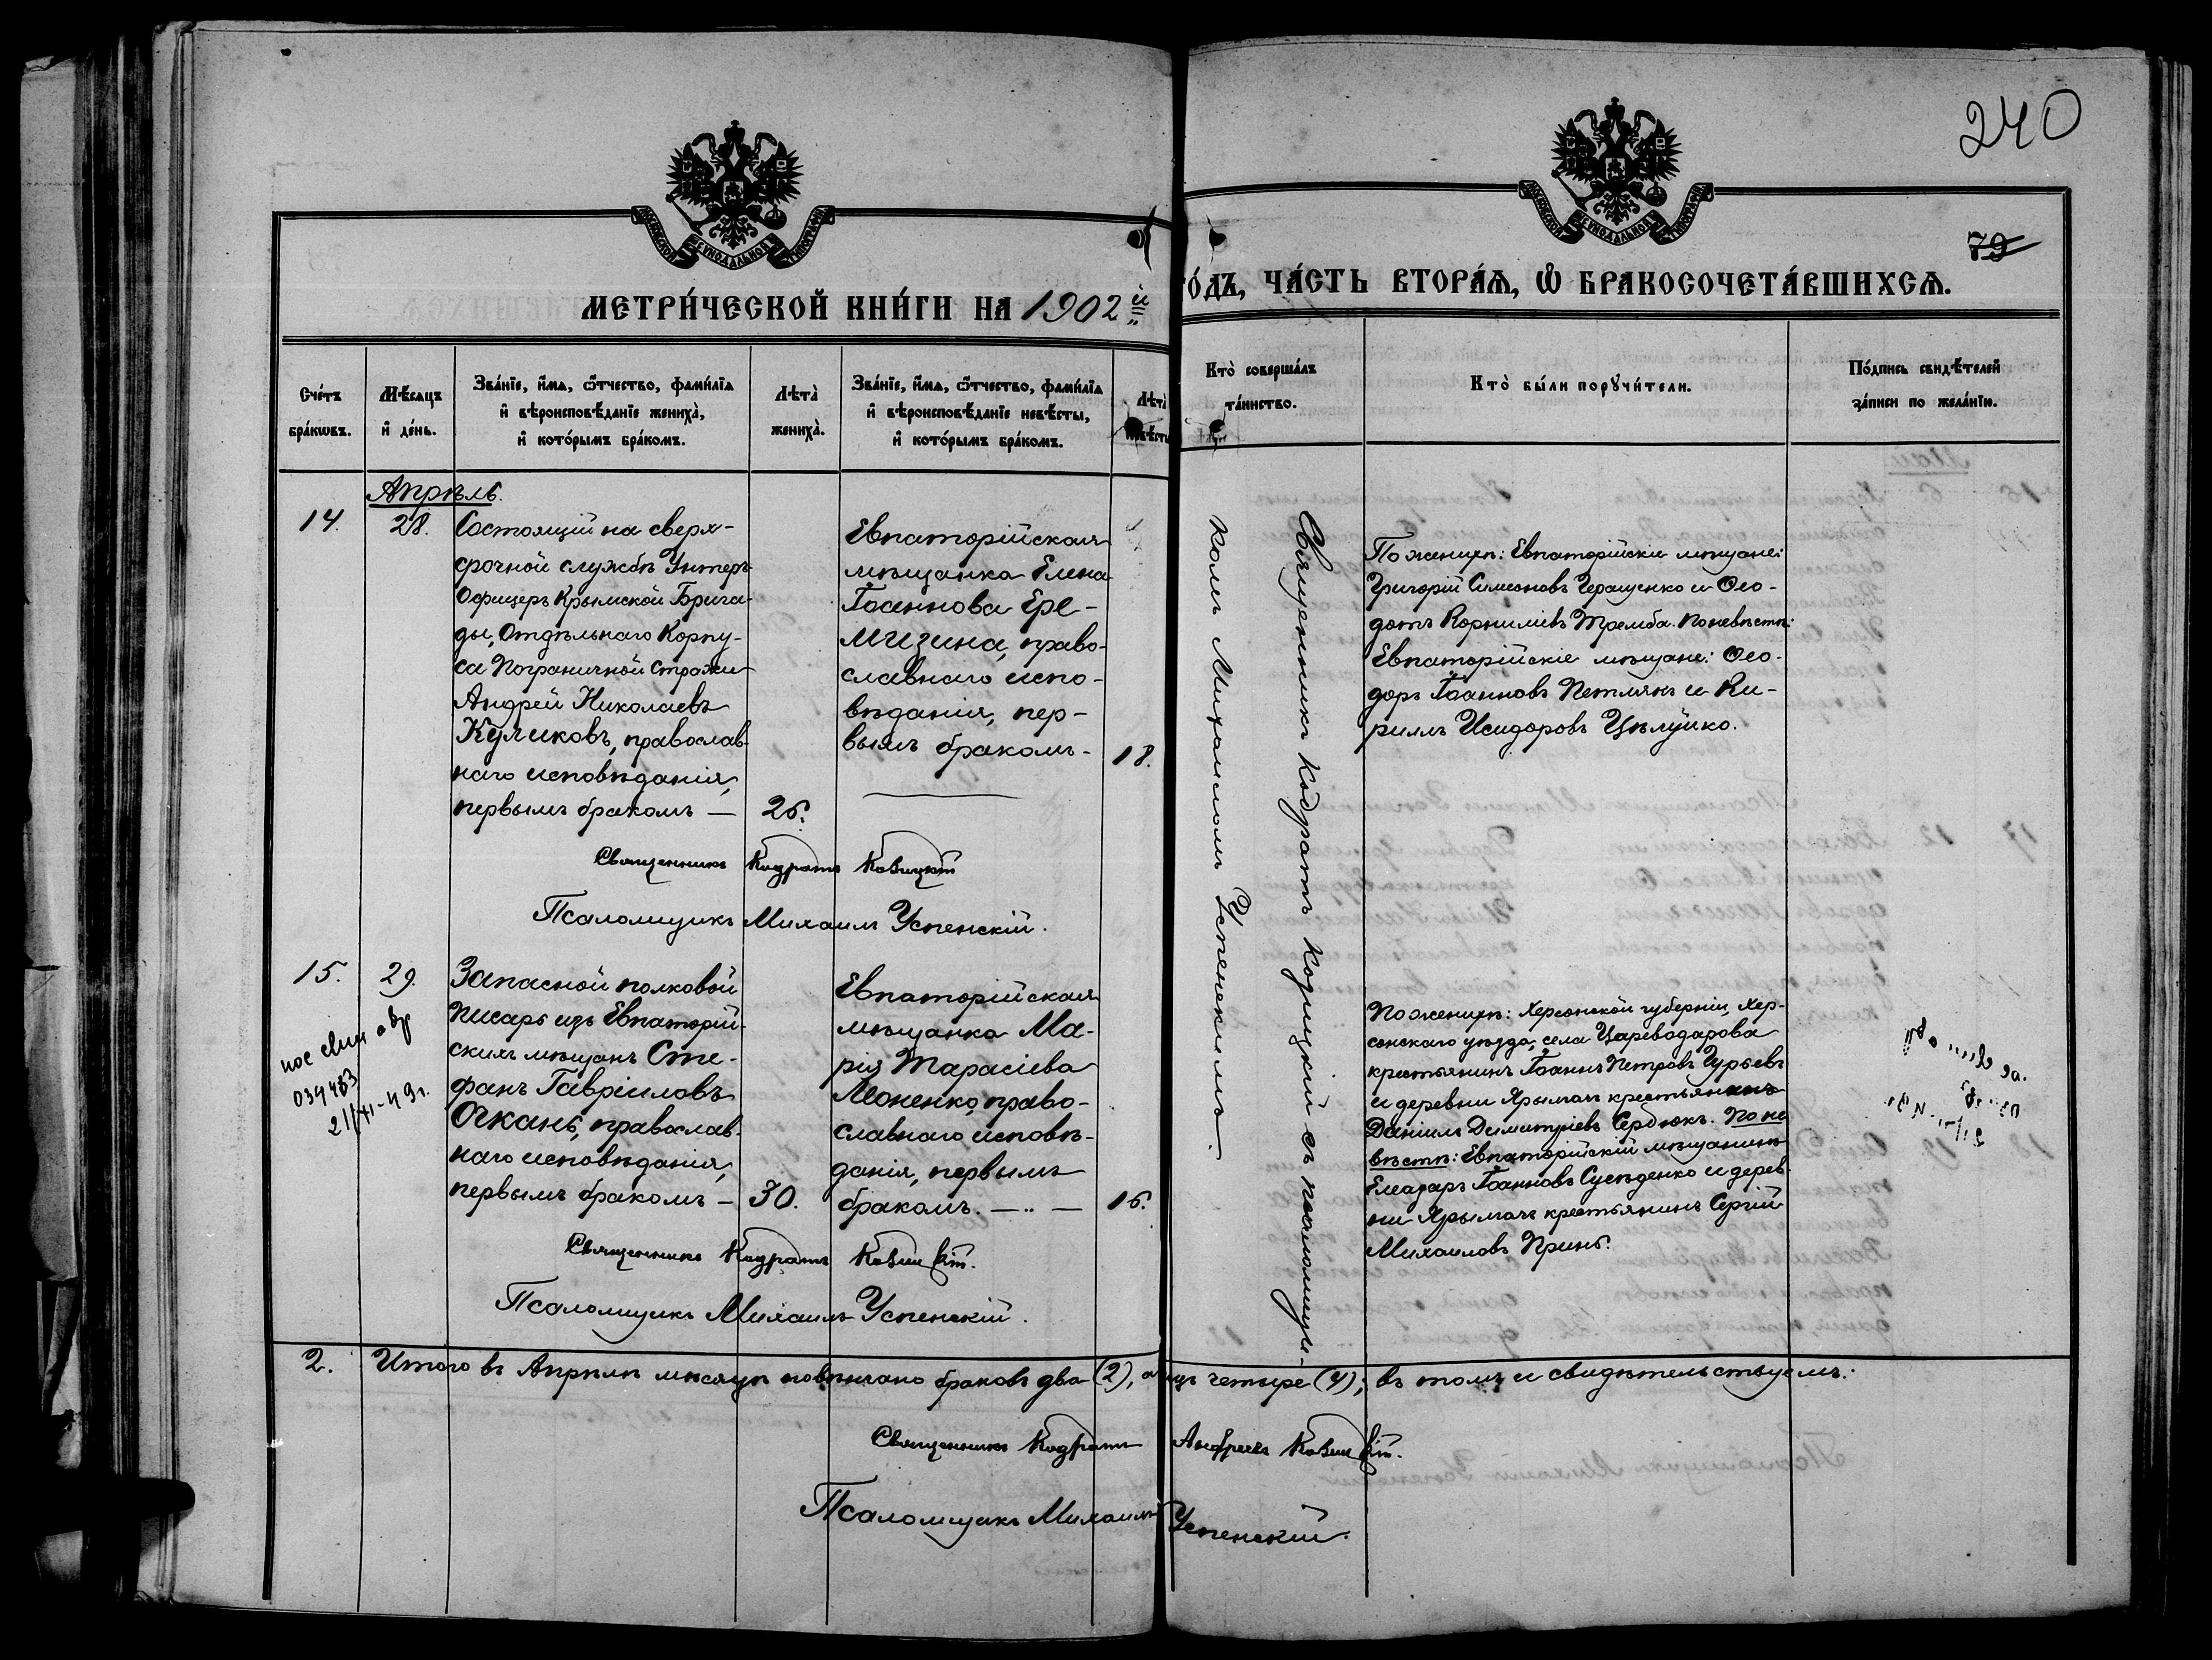 240
79
МОСКОВСКОЙ СѴНОДАЛЬНОЙ ТИПОГРАФІИ
МОСКОВСКОЙ СѴНОДАЛЬНОЙ ТИПОГРАФІИ
МЕТРИ́ЧЕСКОЙ КНИ́ГИ НА 1902й
ГО́ДЪ, ЧА́СТЬ ВТОРА́Ѧ, Ѽ БРАКОСОЧЕТА́ВШИХСѦ.
Сче́тъ
бра́кѡвъ.
Мѣ́сѧцъ
и҆ де́нь.
Зва́нїе, и҆́мѧ, ѻ҆́тчество, фами́лїѧ
и҆ вѣроисповѣ́данїе жениха̀,
и҆ кото́рымъ бра́комъ.
Лѣта̀
жениха̀.
Зва́нїе, и҆́мѧ, ѻ҆́тчество, фами́лїѧ
и҆ вѣроисповѣ́данїе невѣ́сты,
и҆ кото́рымъ бра́комъ.
Лѣта̀
Кто̀ соверша́лъ
та́инство.
Кто̀ бы́ли порꙋчи́тели.
По́дпись свидѣ́телей
за́писи по жела́нїю.
Апрѣль.
14.
28.
Состоящій на сверх-
срочной службѣ Унтеръ
Офицеръ Крымской Брига-
ды, Отдѣльнаго Корпу-
са Пограничной Стражи
Андрей Николаевъ
Куликовъ, православ-
наго исповѣданія,
первымъ бракомъ —
26.
Евпаторійская
мѣщанка Елена
Іоаннова Ере-
мизина, право-
славнаго испо-
вѣданія, пер-
вымъ бракомъ.
18.
Священникъ Кодратъ Козицкій съ псаломщи-
комъ Михаиломъ Успенскимъ.
По женихѣ: Евпаторійскіе мѣщане:
Григорій Симеоновъ Геращенко и Ѳео-
дотъ Корниліевъ Тремба. По невѣстѣ:
Евпаторійскіе мѣщане: Ѳео-
доръ Іоанновъ Петлякъ и Ки-
риллъ Исидоровъ Цѣлуйко.
Священникъ Кодратъ Козицкій
Псаломщикъ Михаилъ Успенскій.
15.
29.
034483
21/XI-49г.
Запасной полковой
писарь изъ Евпаторій-
скихъ мѣщанъ Сте-
фанъ Гавріиловъ
Очкань, православ-
наго исповѣданія,
первымъ бракомъ —
30.
Евпаторійская
мѣщанка Ма-
рія Тарасіева
Моненко, право-
славнаго исповѣ-
данія, первымъ
бракомъ. — .. —
16.
По женихѣ: Херсонской губерніи, Хер-
сонскаго уѣзда, села Цареводарова
крестьянинъ Іоаннъ Петровъ Гурьевъ
и деревни Ярылгач крестьянинъ
Даніилъ Димитріевъ Сердюкъ. По не
вѣстѣ: Евпаторійскій мѣщанинъ
Елеазаръ Іоанновъ Суѣденко и дерев-
ни Ярылгачъ крестьянинъ Сергій
Михаиловъ Принь.
Священникъ Кодратъ Козицкій.
Псаломщикъ Михаилъ Успенскій.
2.
Итого въ Апрѣлѣ мѣсяцѣ повѣнчано браковъ два (2), лицъ четыре (4); въ томъ и свидѣтельствуемъ:
Священникъ Кодратъ Андреевъ Козицкій.
Псаломщикъ Михаилъ Успенскій.